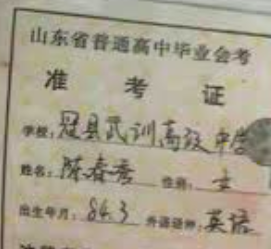 山东省普通高中毕业会考
准考证
学校:冠县武训高级中学
姓名:陈春秀 性别:女
出生年月:84.3 外语语种:英语